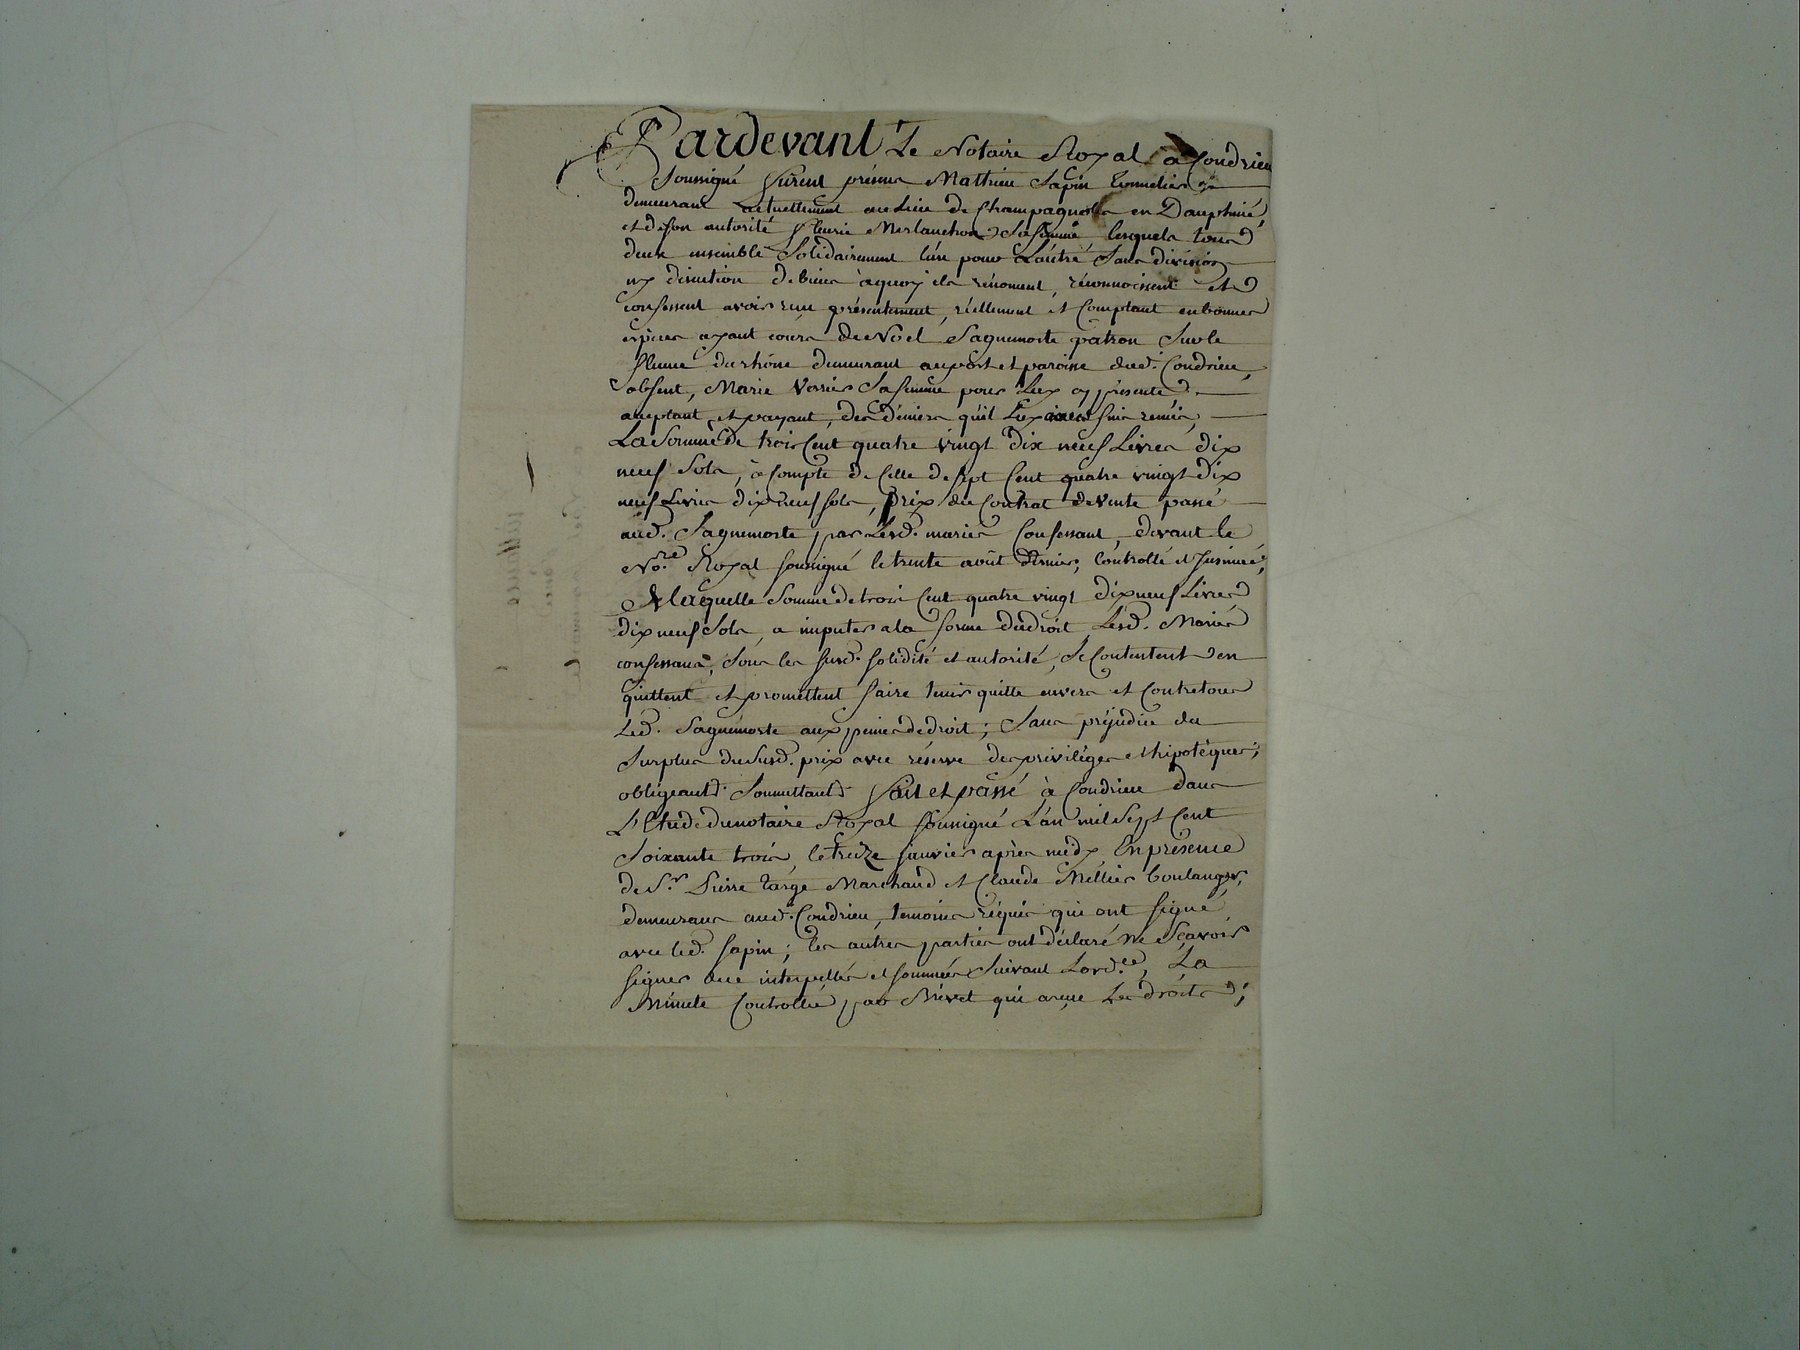 Pardevant Le Notaire Royal à Condrieu
soussigné furent présens Mathieu Sapin tonnelier
demeurant actuellement au lieu de Champagnolle en Dauphiné,
et de son autorité fleurie Merlanchon sa femme lesquels tous
deux ensemble solidairement l'un pour L'autre sans division
ny discution de biens àquoy ils rénoncent, réconnoissent et
confessent avoir reçu présentement, réellement et Comptant en bonnes
espèces ayant cours de Noel Saguimorte patron sur le
fleuve du rhône demeurant au port et paroisse dud. Condrieu,
absent, Marie Verrier sa femme pour Luy cy présente
acceptant et payant, des déniers qu'il Luy a cet fin remis,
La Somme de trois Cent quatre vingt dix neuf Livres dix
neuf sols, à Compte de Celle de sept Cent quatre vingt dix
neuf Livres dix neuf sols, prix du Contrat de vente passé
aud. Saguimorte par Lesd. mariés Confessant, devant le
No.re Royal soussigné le trente août dernier, Controllé et Insinué;
De laquelle Somme de trois Cent quatre vingt dix neuf Livres
dix neuf Sols, a imputer a la forme du droit, Lesd. Mariés
confessans, sous les susd. solidité et autorité, se Contentent en
quittent et promettent faire tenir quitte envers et Contre tous
Led. Saguimorte aux peines de droit; Sans préjudice du
Surplus du susd. prix avec réserve des privilèges et hipotèques;
obligeant. Soumettant. fait et passé à Condrieu dans
L'Etude du notaire Royal soussigné L'an mil sept Cent
Soixante trois, le treize janvier après midy, En présence
de S.r Pierre targe Marchand et Claude Mellier boulanger,
demeurans aud. Condrieu, temoins réquis qui ont signé
avec led. Sapin; les autres parties ont déclaré ne Scavoir
signer de ce interpellés et sommées suivant Lord.ce, La
Minute Controllée par Mivet qui a reçu Les droits;